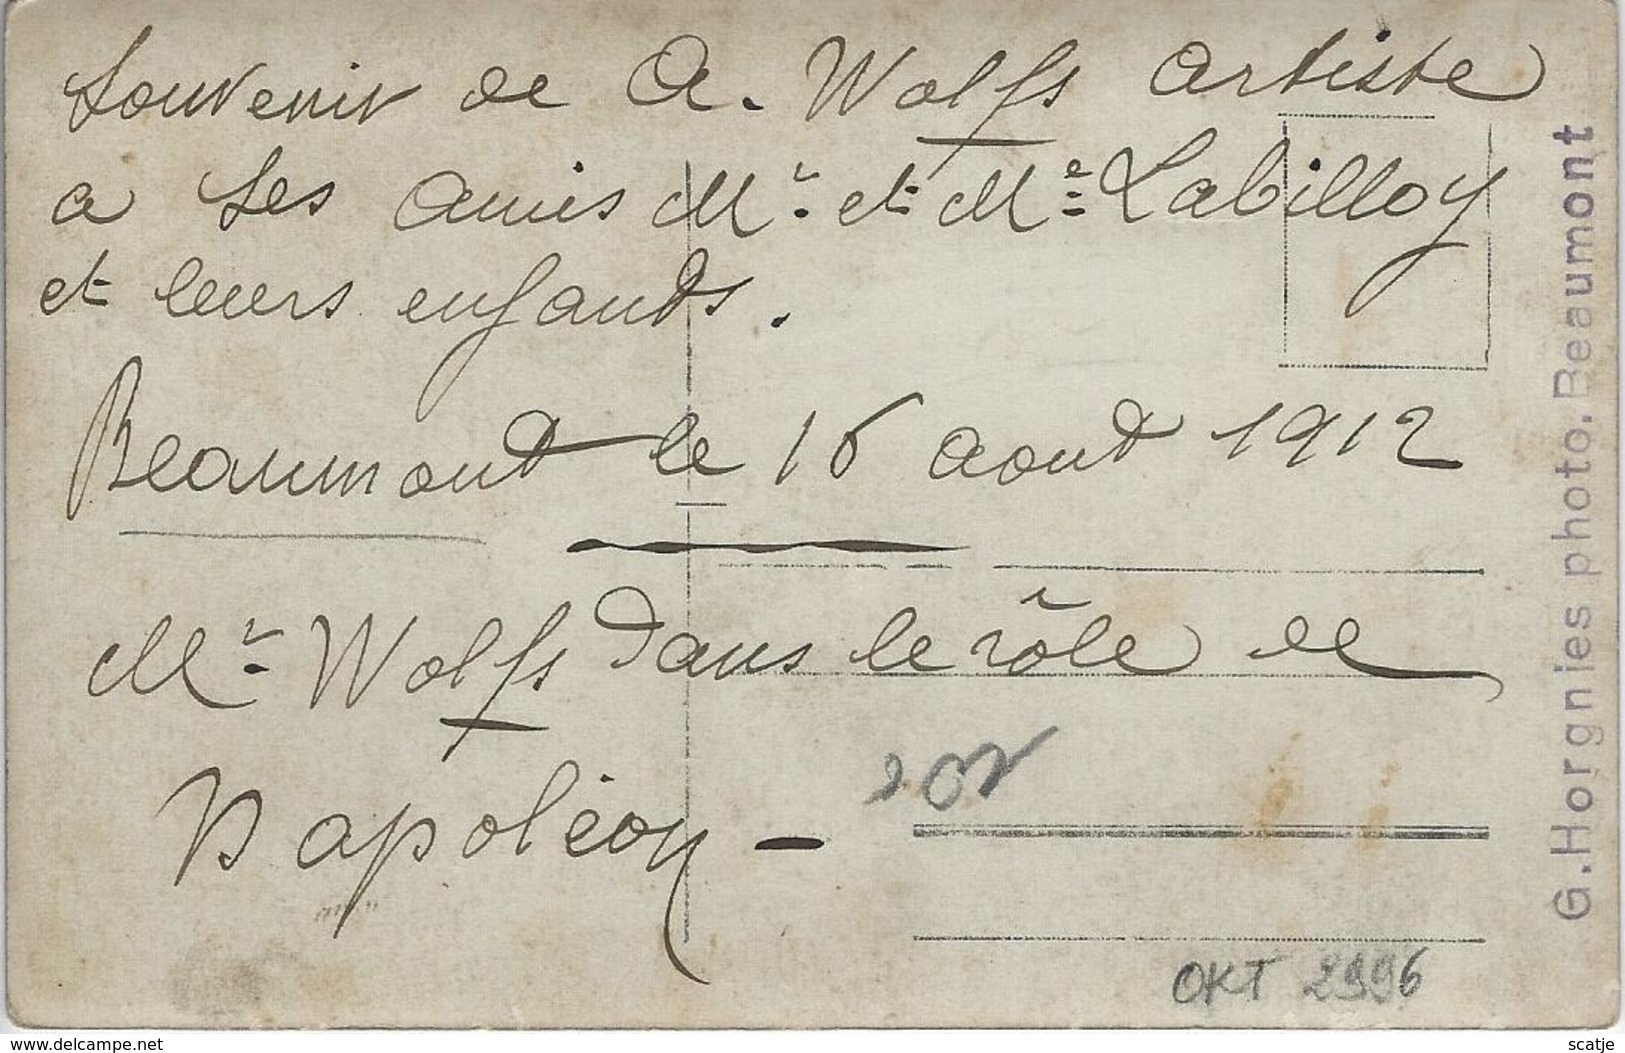 Souvenir de A. Wolfs artiste
a ses amis Mr. et Me. Labilloy
et leurs enfants.
Beaumont le 16 aout 1912
Mr. Wolfs dans le rôle de
Napoléon -
OKT 2996
G. Horgnies photo. Beaumont
www.delcampe.net
scatje